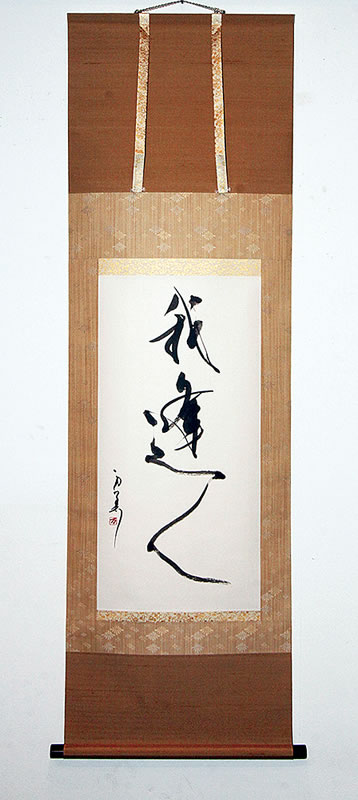 我逢人